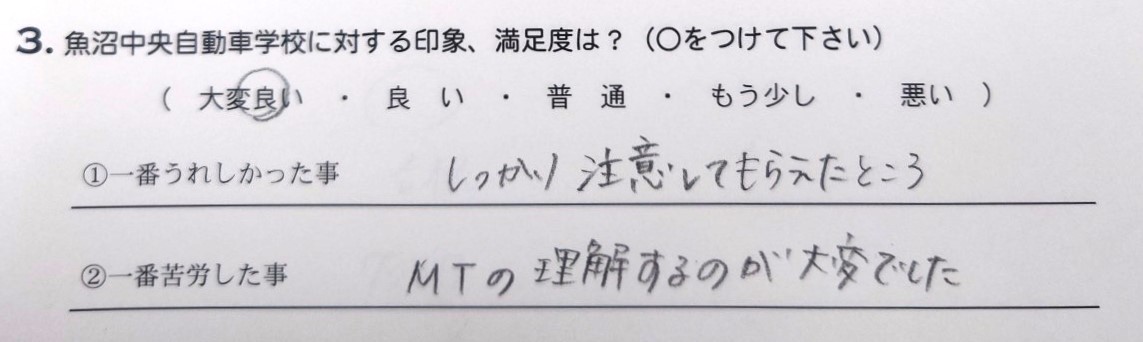 3. 魚沼中央自動車学校に対する印象、満足度は？（○をつけて下さい）
（ 大変良い ・ 良 い ・ 普 通 ・ もう少し ・ 悪い ）
①一番うれしかった事 しっかり注意してもらえたところ
②一番苦労した事 MTの理解するのが大変でした